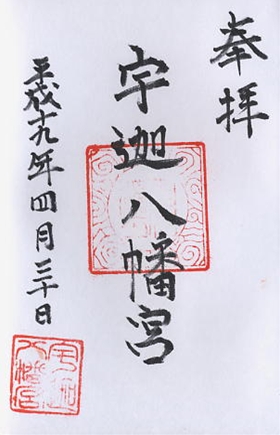 奉拝
宇迦八幡宮
平成十九年四月三十日
宇迦八幡宮